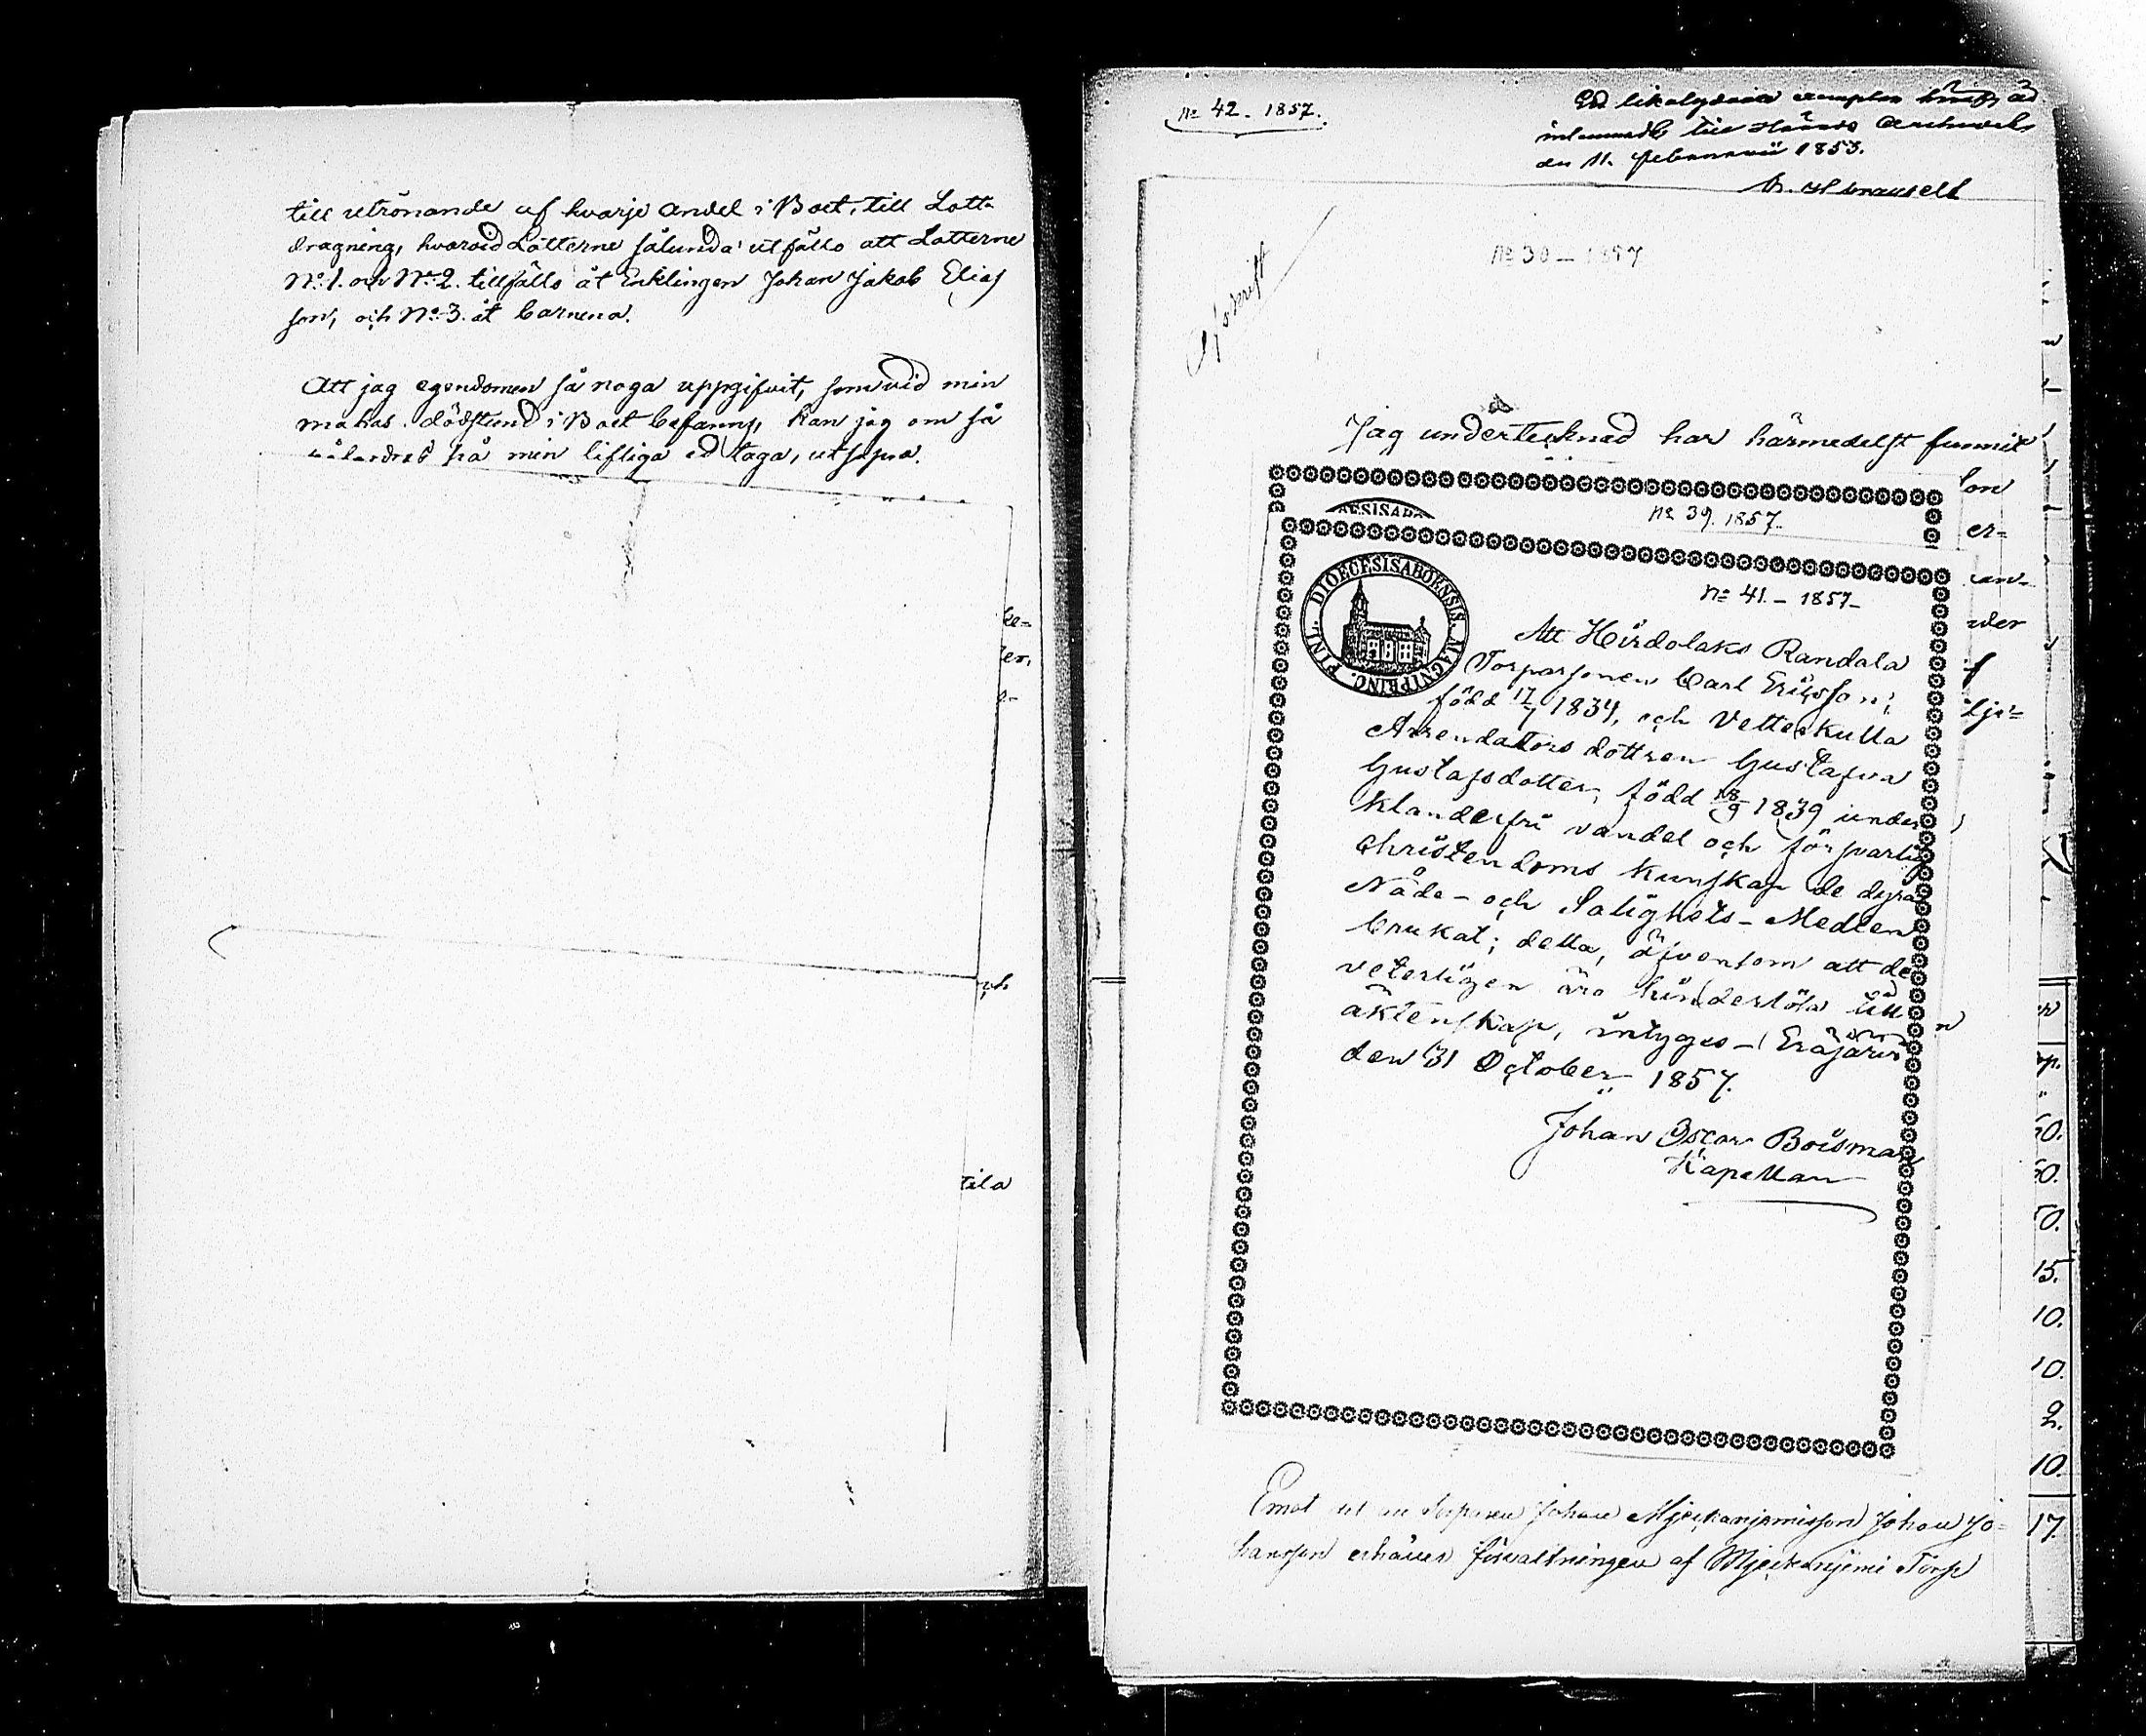 till utrönande af hvarje andel i Boet, till Lott-
dragning, hvarvid Lotterne sålunda utföllo att Lotterne
No. 1. och No. 2. tillföllo åt Enklingen Johan Jakob Elias
son, och No. 3. åt barnena.
Att jag egendomen så noga uppgifvit, som vid min
makas dödstund i Boet befanns, kan jag om så
på min lifliga ed taga, utsupra.
ke-
er,
och
tila
No 42 - 1857.
Ett likalydande exemplar
till Härads Archivet
den 11. Februarii 1853.
No 30 - 1857
Afskrift
Jag undertecknad har härmedelst funnit
son
No 39. 1857.
er-
DIOECESIS ABOENSIS. MAGNI PRINC. FINL.
No 41. - 1857-
an-
der
Att Hirdolaks Randala
Torparsonen Carl Ericsson,
född 17/7 1834, och Vettekulla
Arrendators dottren Gustafva
Gustafsdotter, född 18/9 1839 under
klanderfri vandel och försvarlig
Christendoms kunskap de dyra
Nåde- och Salighets-Medlen
brukat; detta, äfvensom att de
veterligen äro hinderlösa till
äktenskap, intygas - Eräjärvi
den 31 October 1857.
Johan Oscar Boisman
Kapellan
50.
50.
50.
15.
10.
10.
2.
10.
17.
Emot det Torparen Johan Johan Jo-
hansson förvaltningen af Torp